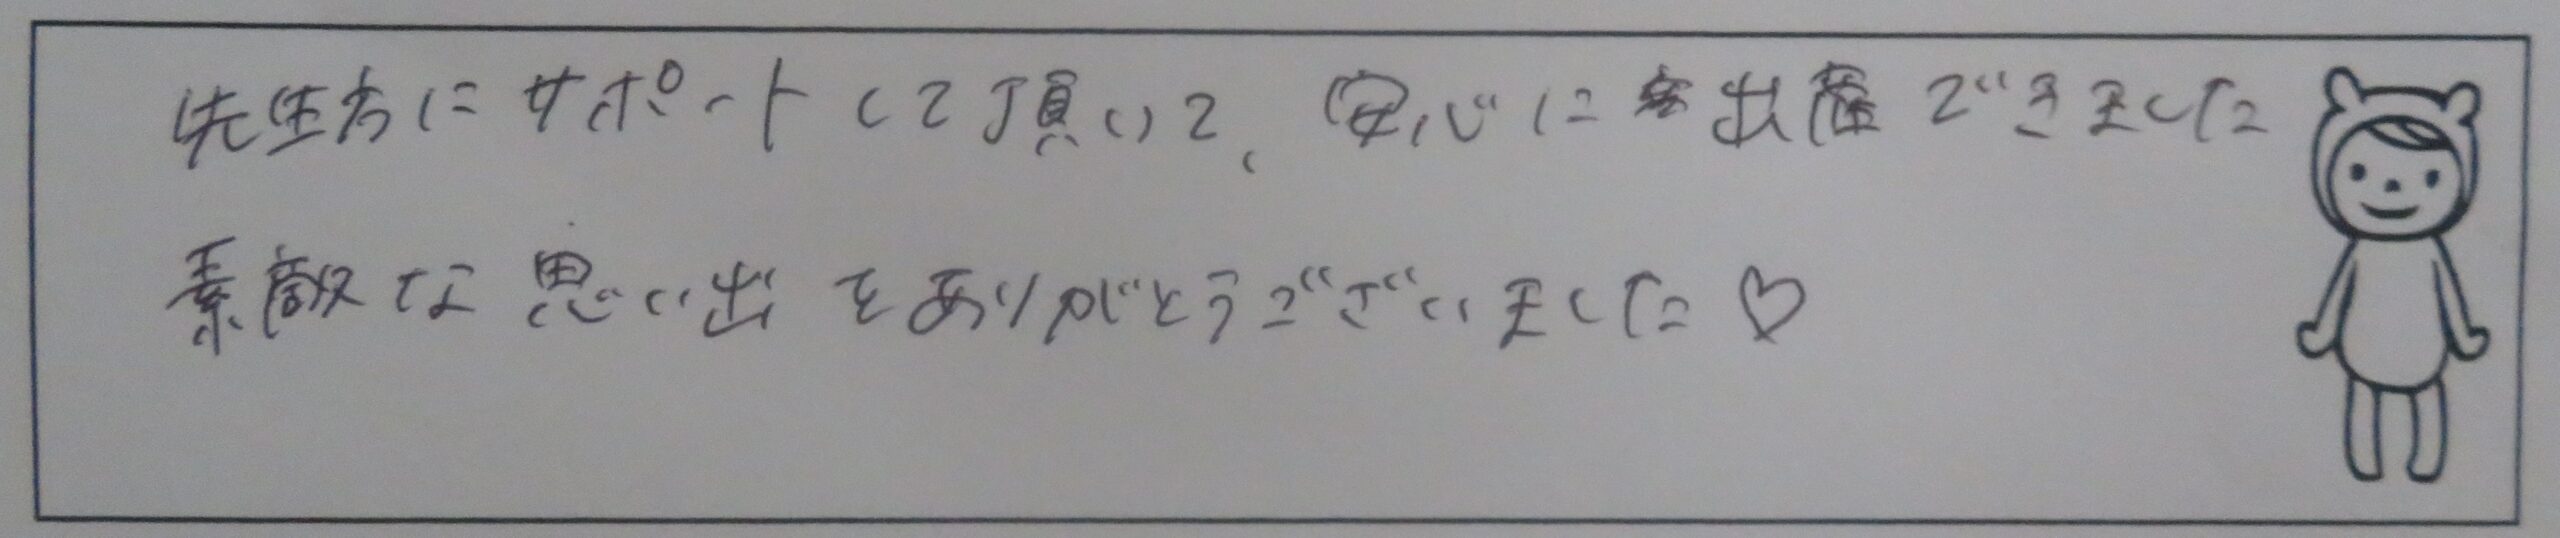 先生方にサポートして頂いて、安心に出産できました
素敵な思い出をありがとうございました♡